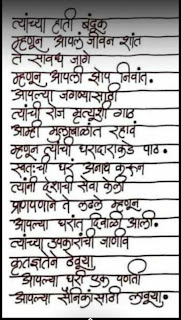 त्यांच्या हाती बंदूक
म्हणून आपलं जीवन शांत
ते सावध जागे
म्हणून आपली झोप निवांत.
आपल्या जगण्यासाठी
त्यांची रोज मृत्यूशी गाठ
आम्ही मुलाबाळांत रहावं
म्हणून त्यांची घरादाराकडे पाठ.
स्वतःची घरं अनाथ करून
त्यांनी देशाची सेवा केली
प्राणपणाने ते लढले म्हणून
आपल्या घरात दिवाळी आली.
त्यांच्या उपकाराची जाणीव
कृतज्ञतेने ठेवूया
आपल्या घरी एक पणती
आपल्या सैनिकांसाठी लावूया.